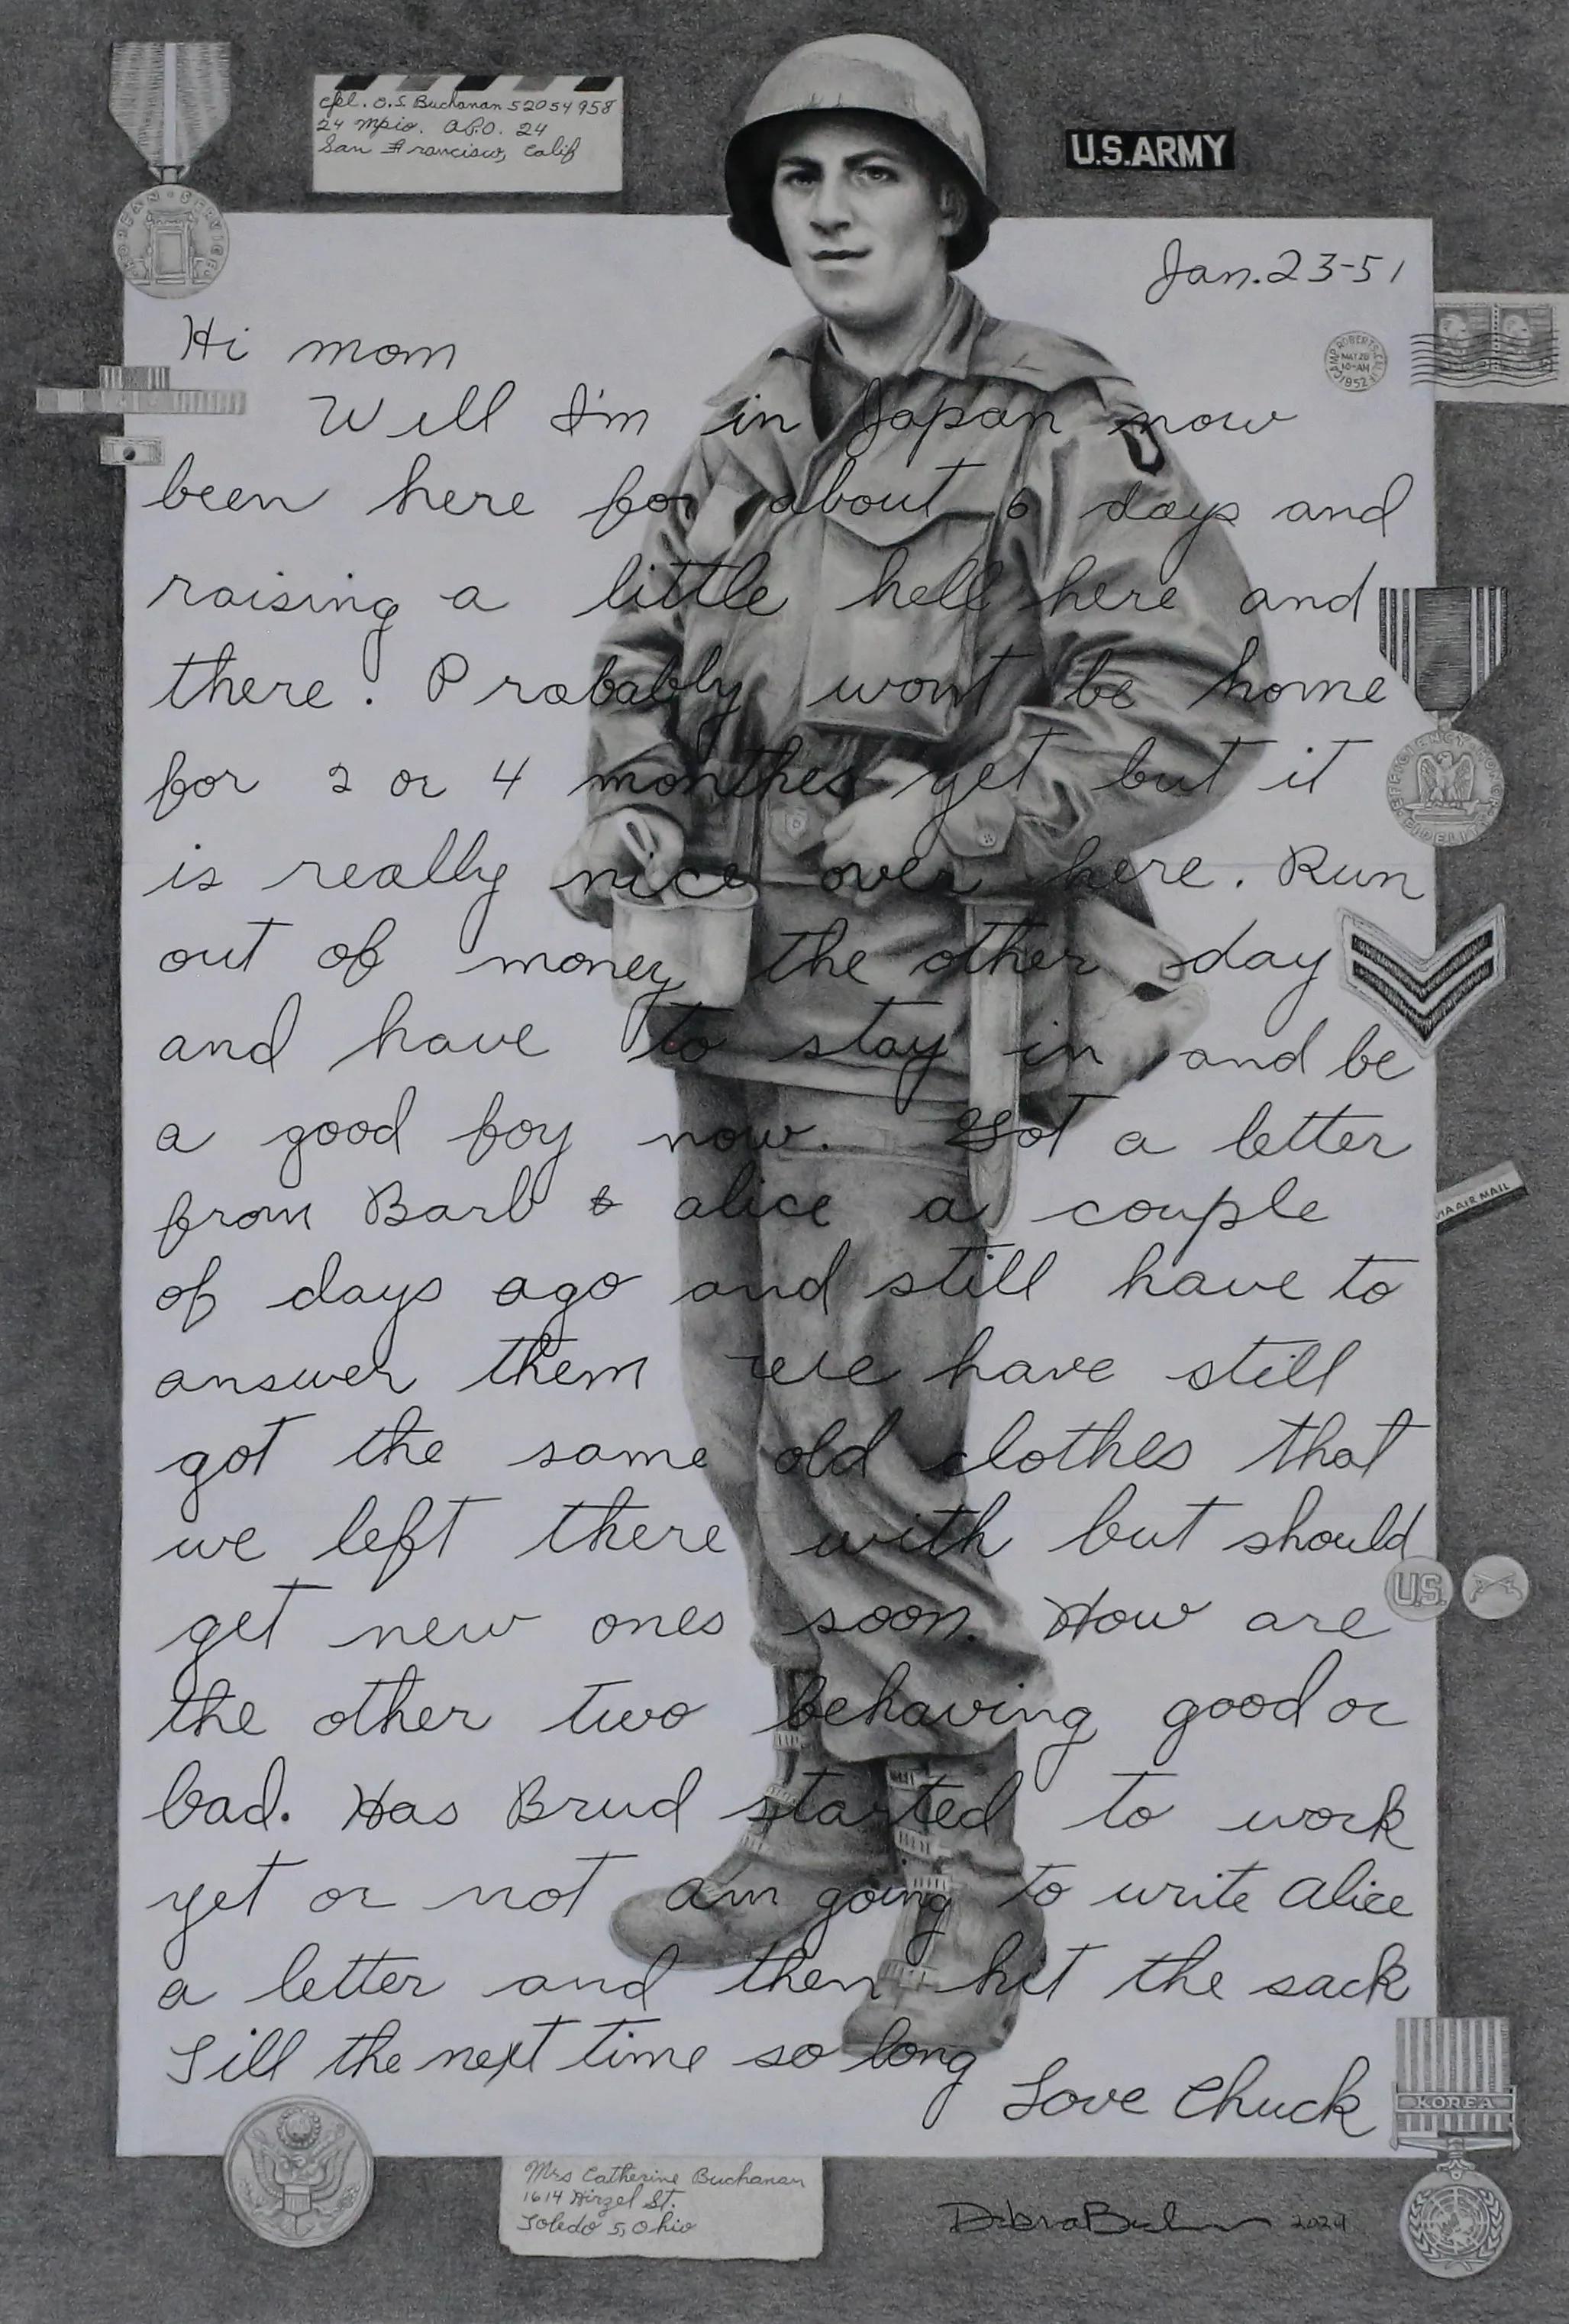 KOREAN SERVICE
cpl. O.S. Buchanan 52054958
24 Mpco. A.P.O. 24
San Francisco, Calif
U.S.ARMY
Jan. 23-51
CAMP ROBERTS, CALIF
MAY 28
10-AM
1952
Hi mom
Will I'm in Japan now
been here for about 6 days and
raising a little hell here and
there. Probably wont be home
for 2 or 4 monthes yet but it
is really nice over here. Run
out of money the other day
and have to stay in and be
a good boy now. Got a letter
from Barb & alice a couple
of days ago and still have to
answer them we have still
got the same old clothes that
we left there with but should
get new ones soon. How are
the other two behaving good or
bad. Has Brud started to work
yet or not am going to write alice
a letter and then hit the sack
Till the next time so long
Love Chuck
EFFICIENCY HONOR FIDELITY
VIA AIR MAIL
U.S.
KOREA
Mrs Catherine Buchanan
1614 Hirzel St.
Toledo 5, Ohio
Debra 2024